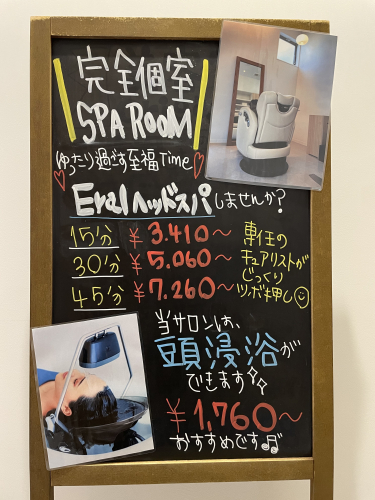 完全個室
SPA ROOM
ゆったり過ごす至福Time
Eralヘッドスパしませんか?
15分 ¥3.410～
30分 ¥5.060～
45分 ¥7.260～
専任の
チュアリストが
じっくり
ツボ押し
当サロンは、
頭浸浴が
できます
¥1,760～
おすすめです♫